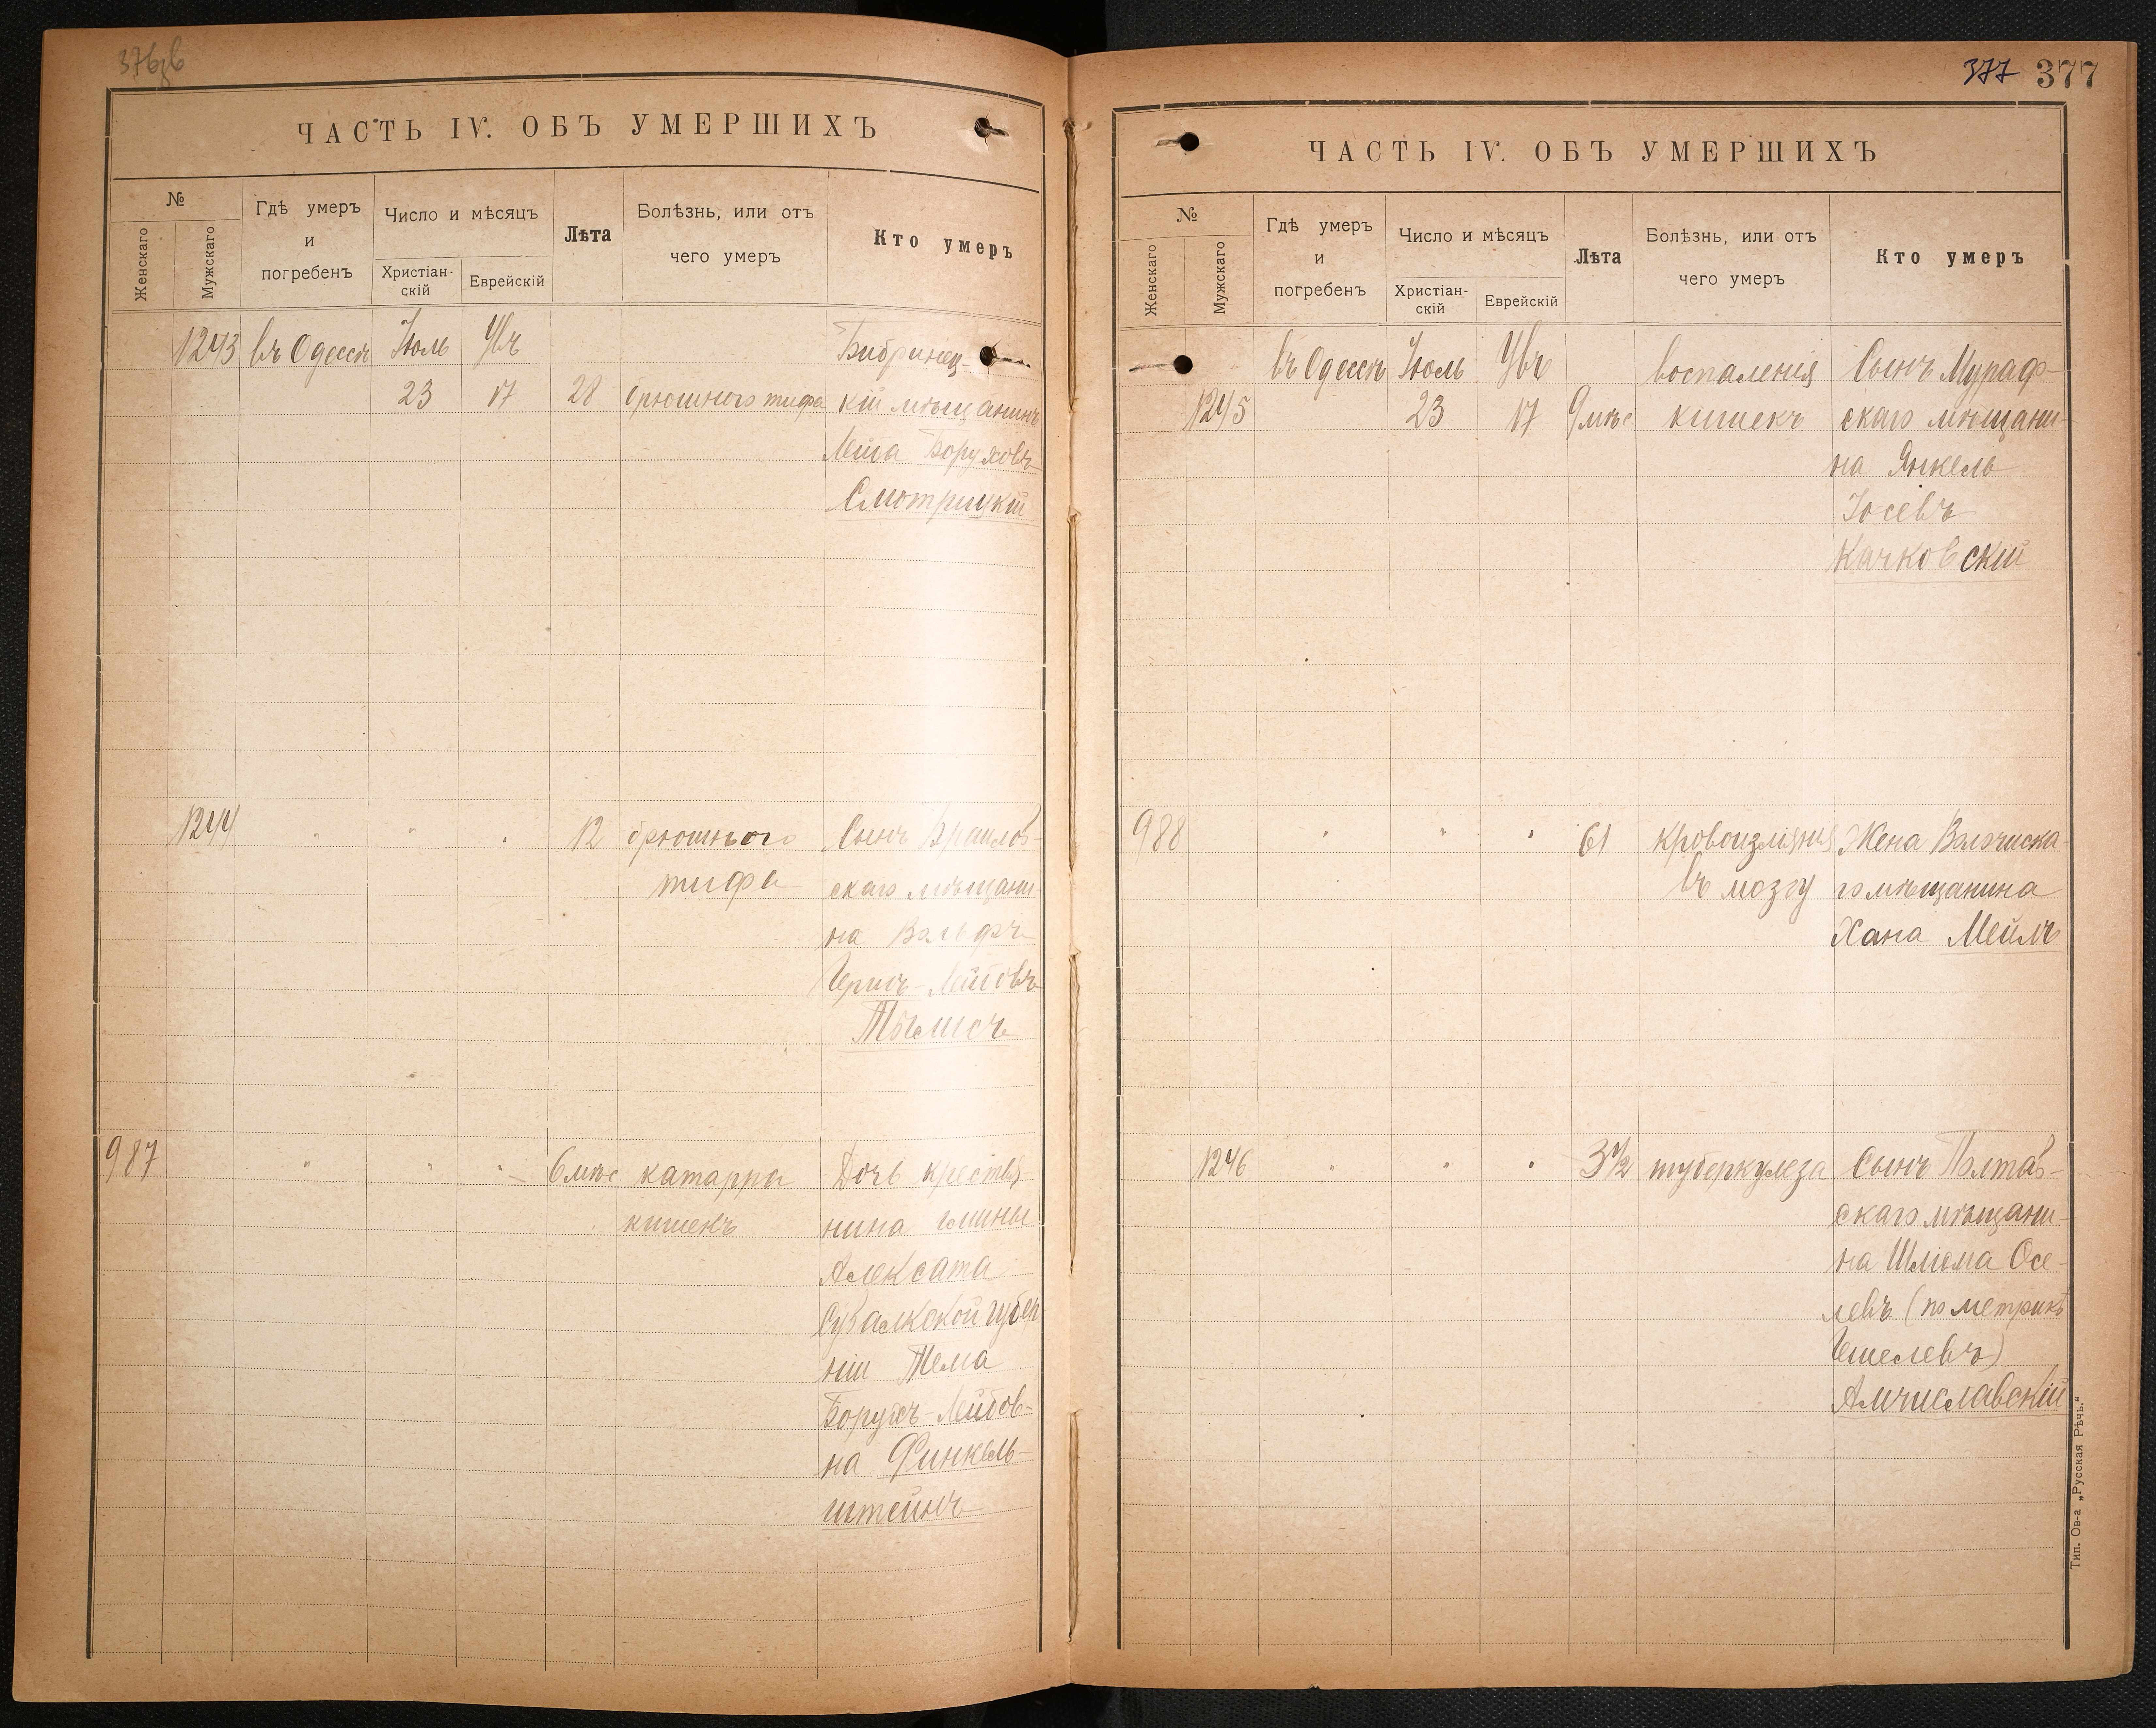 376
ЧАСТЬ IV. ОБЪ УМЕРШИХЪ
№
Женскаго
Мужскаго
Гдѣ умеръ
и
погребенъ
Число и мѣсяцъ
Христіан-
скій
Еврейскій
Лѣта
Болѣзнь, или отъ
чего умеръ
Кто умеръ
1243 въ Одессѣ Іюль Увъ Бибринец-
23 17 28 брюшного тифа кій мѣщанинъ
Лейба Боруховъ
Смотрицкій
1244 " " " 12 брюшного Сынъ Враилов-
тифа скаго мѣщани-
на Вольфъ
Герисъ-Лейбовъ
987 " " " 6 мѣс катарра Дочь крестья-
кишекъ нина гмины
Алексата
Сувалкской губер
ніи Тема
Борухъ-Лейбов-
на Финкель-
штейнъ
377 377
ЧАСТЬ IV. ОБЪ УМЕРШИХЪ
№
Женскаго
Мужскаго
Гдѣ умеръ
и
погребенъ
Число и мѣсяцъ
Христіан-
скій
Еврейскій
Лѣта
Болѣзнь, или отъ
чего умеръ
Кто умеръ
въ Одессѣ Іюль Увъ воспаленія Сынъ Мураф-
1245 23 17 9 мѣс кишекъ скаго мѣщани-
на Янкель
Іосевъ
Качковскій
988 " " " 61 кровоизліянія Жена Волочиска-
въ мозгу го мѣщанина
Хана Мейлъ
1246 " " " 3½ туберкулеза Сынъ Полтав-
скаго мѣщани-
на Шлёма Осе-
левъ (по метрикѣ
Гешелевъ)
Амчиславскій
Тип. Ов-а „Русская Рѣчь.“